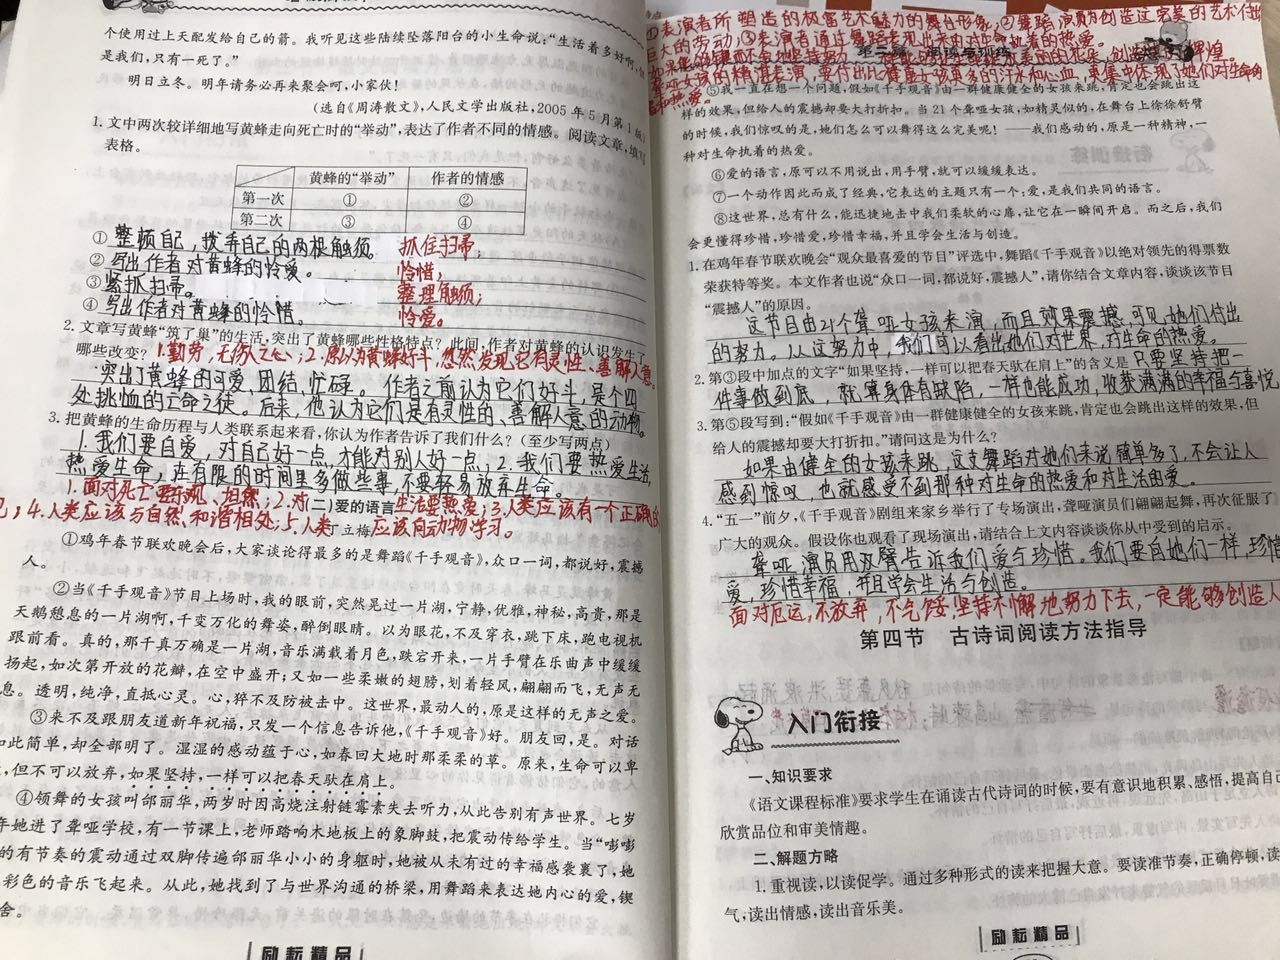 个使用过上天配发给自己的箭。我听见这些陆续坠落阳台的小生命说:“生活着多好啊,但
是我们,只有一死了。”
明日立冬。明年请务必再来聚会呵,小家伙!
(选自《周涛散文》,人民文学出版社,2005年5月第1版)
1. 文中两次较详细地写黄蜂走向死亡时的“举动”,表达了作者不同的情感。阅读文章,填写
表格。
黄蜂的“举动” 作者的情感
第一次 ① ②
第二次 ③ ④
① 整顿自己,拨弄自己的两根触须。 抓住扫帚;
② 写出作者对黄蜂的怜爱。 怜惜;
③ 紧抓扫帚。 整理触须;
④ 写出作者对黄蜂的怜惜。 怜爱。
2. 文章写黄蜂“筑了巢”的生活,突出了黄蜂哪些性格特点?此间,作者对黄蜂的认识发生了
哪些改变? 1.勤劳,无伤人之心;2.原以为黄蜂好斗,忽然发现它有灵性、善解人意。
突出了黄蜂的可爱、团结、忙碌。作者之前认为它们好斗,是个四
处挑恤的亡命之徒。后来,他认为它们是有灵性的、善解人意的动物。
3. 把黄蜂的生命历程与人类联系起来看,你认为作者告诉了我们什么?(至少写两点)
1.我们要自爱,对自己好一点,才能对别人好一点;2.我们要热爱生活,
热爱生命,在有限的时间里多做些事,不要轻易放弃生命。
1.面对死亡要乐观、坦然;2.对 (二)爱的语言 生活要热爱;3.人类应该有一个正确的
4.人类应该与自然和谐相处;5.人类 立梅 应该向动物学习。
①鸡年春节联欢晚会后,大家谈论得最多的是舞蹈《千手观音》,众口一词,都说好,震撼
人。
②当《千手观音》节目上场时,我的眼前,突然晃过一片湖,宁静,优雅,神秘,高贵,那是
天鹅憩息的一片湖啊,千变万化的舞姿,醉倒眼睛。以为眼花,不及穿衣,跳下床,跑电视机
跟前看。真的,那千真万确是一片湖,音乐满载着月色,跌宕开来,一片手臂在乐曲声中缓缓
扬起,如次第开放的花瓣,在空中盛开;又如一些柔嫩的翅膀,划着轻风,翩翩而飞,无声无
息。透明,纯净,直抵心灵。心,猝不及防被击中。这世界,最动人的,原是这样的无声之爱。
③来不及跟朋友道新年祝福,只发一个信息告诉他,《千手观音》好。朋友回,是。对话
如此简单,却全部明了。湿湿的感动蕴于心,如春回大地时那柔柔的草。原来,生命可以卑
,但不可以放弃,如果坚持,一样可以把春天驮在肩上。
④领舞的女孩叫邰丽华,两岁时因高烧注射链霉素失去听力,从此告别有声世界。七岁
年她进了聋哑学校,有一节课上,老师踏响木地板上的象脚鼓,把震动传给学生。当“嘭嘭
的有节奏的震动通过双脚传遍邰丽华小小的身躯时,她被从未有过的幸福感袭裹了,她
彩色的音乐飞起来。从此,她找到了与世界沟通的桥梁,用舞蹈来表达她内心的爱,锲
舍。
励耘精品
①表演者所塑造的极富艺术魅力的舞台形象;②舞蹈演员为创造这完美的艺术付出
巨大的劳动;③表演者通过舞蹈表现出来的对生命执着的热爱。
聋哑女孩的精湛表演,要付出比健康女孩更多的汗水和心血,更集中体现了她们对生命的
和热爱。
⑤我一直在想一个问题,假如《千手观音》由一群健康健全的女孩来跳,肯定也会跳出这
样的效果,但给人的震撼却要大打折扣。当21个聋哑女孩,如精灵似的,在舞台上徐徐舒臂
的时候,我们惊叹的是,她们怎么可以舞得这么完美呢!——我们感动的,原是一种精神,一
种对生命执着的热爱。
⑥爱的语言,原可以不用说出,用手臂,就可以缓缓表达。
⑦一个动作因此而成了经典,它表达的主题只有一个:爱,是我们共同的语言。
⑧这世界,总有什么,能迅捷地击中我们柔软的心扉,让它在一瞬间开启。而之后,我们
会更懂得珍惜,珍惜爱,珍惜幸福,并且学会生活与创造。
1. 在鸡年春节联欢晚会“观众最喜爱的节目”评选中,舞蹈《千手观音》以绝对领先的得票数
荣获特等奖。本文作者也说“众口一词,都说好,震撼人”,请你结合文章内容,谈谈该节目
“震撼人”的原因。
这节目由21个聋哑女孩来演,而且效果震撼,可见她们付出
的努力。从这努力中,我们可以看出她们对世界,对生命的热爱。
2. 第③段中加点的文字“如果坚持,一样可以把春天驮在肩上”的含义是 只要坚持把一
件事做到底,就算身体有缺陷,一样也能成功,收获满满的幸福与喜悦
3. 第⑤段写到:“假如《千手观音》由一群健康健全的女孩来跳,肯定也会跳出这样的效果,但
给人的震撼却要大打折扣。”请问这是为什么?
如果由健全的女孩来跳,这支舞蹈对她们来说简单多了,不会让人
感到惊叹,也就感受不到那种对生命的热爱和对生活的爱。
4. “五一”前夕,《千手观音》剧组来家乡举行了专场演出,聋哑演员们翩翩起舞,再次征服了
广大的观众。假设你也观看了现场演出,请结合上文内容谈谈你从中受到的启示。
聋哑演员用双臂告诉我们爱与珍惜。我们要向她们一样,珍惜
爱,珍惜幸福,并且学会生活与创造。
面对厄运,不放弃,不气馁,坚持不懈地努力下去,一定能够创造人
第四节 古诗词阅读方法指导
入门衔接
一、知识要求
《语文课程标准》要求学生在诵读古代诗词的时候,要有意识地积累、感悟,提高自己
欣赏品位和审美情趣。
二、解题方略
1. 重视读,以读促学。通过多种形式的读来把握大意。要读准节奏,正确停顿,读
气,读出情感,读出音乐美。
励耘精品